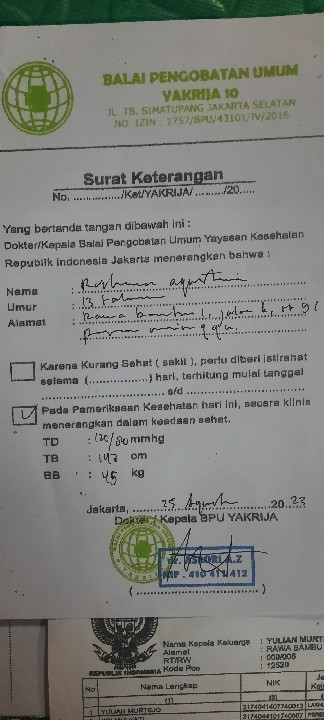 BALAI PENGOBATAN UMUM
YAKRIJA 10
JL. TB. SIMATUPANG JAKARTA SELATAN
NO. IZIN : 1757/BPU/43101/IV/2016
Surat Keterangan
No. ................/Ket/YAKRIJA/ ........../20.....
Yang bertanda tangan dibawah ini :
Dokter/Kepala Balai Pengobatan Umum Yayasan Kesehatan
Republik Indonesia Jakarta menerangkan bahwa :
Nama :
Umur : 13 tahun
Alamat : Rawa bambu 1, jalan
pasar minggu.
Karena Kurang Sehat ( sakit ), perlu diberi istirahat
selama (...............) hari, terhitung mulai tanggal
s/d
Pada Pemeriksaan Kesehatan hari ini, secara klinis
menerangkan dalam keadaan sehat.
TD : 120/80 mmhg
TB : 147 cm
BB : 45 kg
Jakarta, 25 Agust 2023
Dokter / Kepala BPU YAKRIJA
ASRORI A.Z
NIP . 410 411 412
(........................)
REPUBLIK INDONESIA
Nama Kepala Keluarga : YULIAN MURT
Alamat : RAWA BAMBU
RT/RW : 009/006
Kode Pos : 12520
No Nama Lengkap NIK
(1) (2)
1 YULIAN MURTEJO